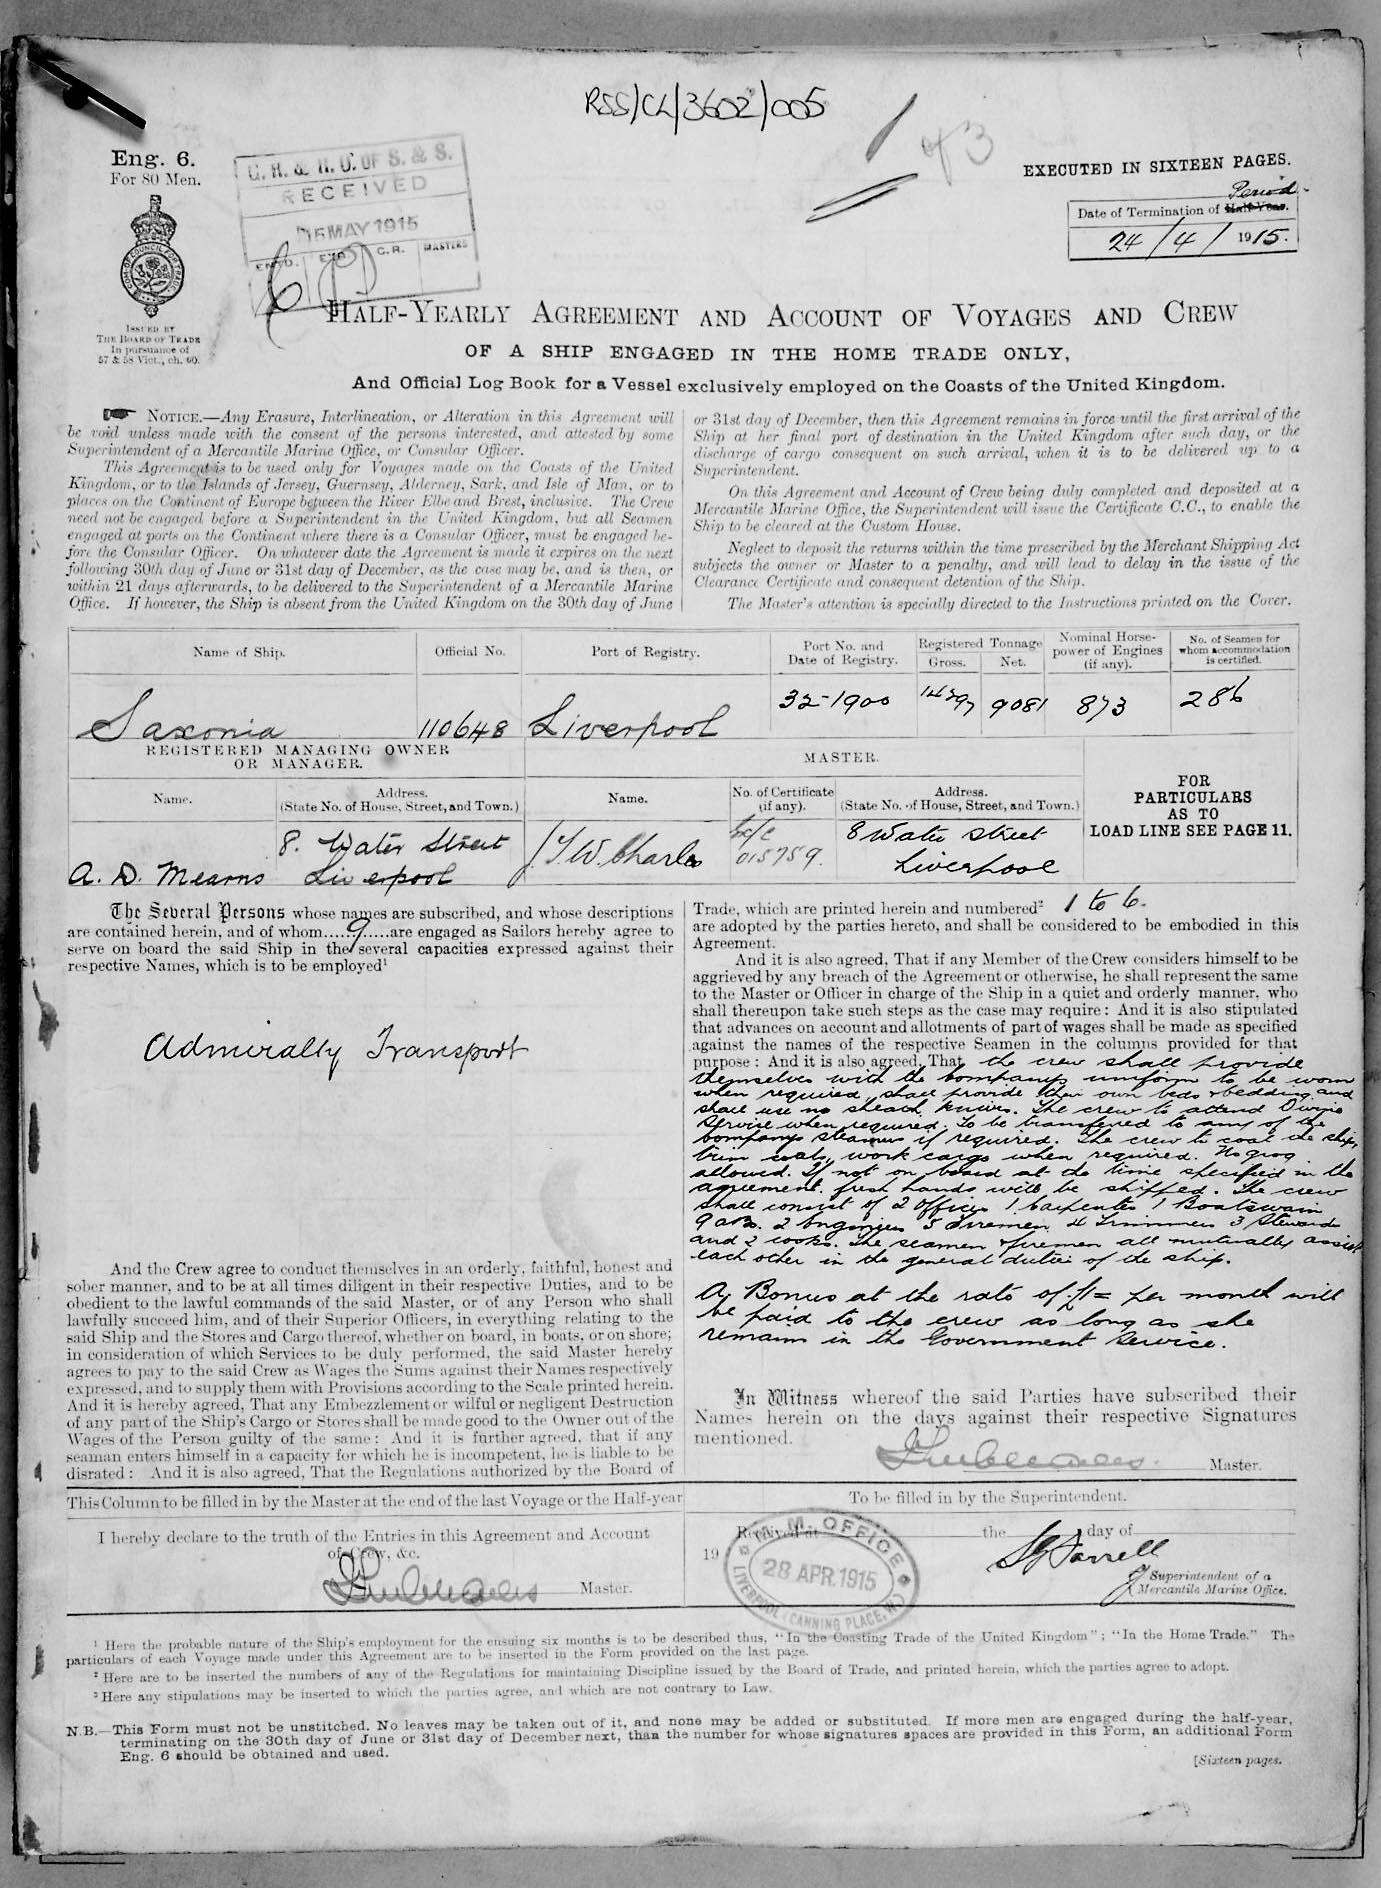 RSS/CL/3602/005
1 of 3
Eng. 6.
For 80 Men.
ISSUED BY
THE BOARD OF TRADE
In pursuance of
57 & 58 Vict., ch. 60.
RECEIVED
MAY 1915
C.R.
MASTERS
EXECUTED IN SIXTEEN PAGES.
Period
Date of Termination of Half-Year.
24/4/1915.
HALF-YEARLY AGREEMENT AND ACCOUNT OF VOYAGES AND CREW
OF A SHIP ENGAGED IN THE HOME TRADE ONLY,
And Official Log Book for a Vessel exclusively employed on the Coasts of the United Kingdom.
NOTICE.—Any Erasure, Interlineation, or Alteration in this Agreement will
be void unless made with the consent of the persons interested, and attested by some
Superintendent of a Mercantile Marine Office, or Consular Officer.
This Agreement is to be used only for Voyages made on the Coasts of the United
Kingdom, or to the Islands of Jersey, Guernsey, Alderney, Sark, and Isle of Man, or to
places on the Continent of Europe between the River Elbe and Brest, inclusive. The Crew
need not be engaged before a Superintendent in the United Kingdom, but all Seamen
engaged at ports on the Continent where there is a Consular Officer, must be engaged be-
fore the Consular Officer. On whatever date the Agreement is made it expires on the next
following 30th day of June or 31st day of December, as the case may be, and is then, or
within 21 days afterwards, to be delivered to the Superintendent of a Mercantile Marine
Office. If however, the Ship is absent from the United Kingdom on the 30th day of June
or 31st day of December, then this Agreement remains in force until the first arrival of the
Ship at her final port of destination in the United Kingdom after such day, or the
discharge of cargo consequent on such arrival, when it is to be delivered up to a
Superintendent.
On this Agreement and Account of Crew being duly completed and deposited at a
Mercantile Marine Office, the Superintendent will issue the Certificate C.C., to enable the
Ship to be cleared at the Custom House.
Neglect to deposit the returns within the time prescribed by the Merchant Shipping Act
subjects the owner or Master to a penalty, and will lead to delay in the issue of the
Clearance Certificate and consequent detention of the Ship.
The Master's attention is specially directed to the Instructions printed on the Cover.
Name of Ship. Official No. Port of Registry. Port No. and Date of Registry. Registered Tonnage Gross. Net. Nominal Horse-power of Engines (if any). No. of Seamen for whom accommodation is certified.
Saxonia 110648 Liverpool 32-1900 14297 9081 873 286
REGISTERED MANAGING OWNER
OR MANAGER.
MASTER.
Name. Address. (State No. of House, Street, and Town.) Name. No. of Certificate (if any). Address. (State No. of House, Street, and Town.)
FOR
PARTICULARS
AS TO
LOAD LINE SEE PAGE 11.
A. D. Mearns 8. Water Street Liverpool J. T. W. Charles 015759. 8 Water Street Liverpool
The Several Persons whose names are subscribed, and whose descriptions
are contained herein, and of whom.....9.....are engaged as Sailors hereby agree to
serve on board the said Ship in the several capacities expressed against their
respective Names, which is to be employed¹
Admiralty Transport
And the Crew agree to conduct themselves in an orderly, faithful, honest and
sober manner, and to be at all times diligent in their respective Duties, and to be
obedient to the lawful commands of the said Master, or of any Person who shall
lawfully succeed him, and of their Superior Officers, in everything relating to the
said Ship and the Stores and Cargo thereof, whether on board, in boats, or on shore;
in consideration of which Services to be duly performed, the said Master hereby
agrees to pay to the said Crew as Wages the Sums against their Names respectively
expressed, and to supply them with Provisions according to the Scale printed herein.
And it is hereby agreed, That any Embezzlement or wilful or negligent Destruction
of any part of the Ship's Cargo or Stores shall be made good to the Owner out of the
Wages of the Person guilty of the same: And it is further agreed, that if any
seaman enters himself in a capacity for which he is incompetent, he is liable to be
disrated: And it is also agreed, That the Regulations authorized by the Board of
Trade, which are printed herein and numbered² 1 to 6.
are adopted by the parties hereto, and shall be considered to be embodied in this
Agreement.
And it is also agreed, That if any Member of the Crew considers himself to be
aggrieved by any breach of the Agreement or otherwise, he shall represent the same
to the Master or Officer in charge of the Ship in a quiet and orderly manner, who
shall thereupon take such steps as the case may require: And it is also stipulated
that advances on account and allotments of part of wages shall be made as specified
against the names of the respective Seamen in the columns provided for that
purpose: And it is also agreed, That the crew shall provide
themselves with the Company's uniform to be worn
when required, shall provide their own beds & bedding and
shall use no sheath knives. The crew to attend Divine
Service when required. To be transferred to any of the
Company's steamers if required. The crew to coal the ship,
trim coals, work cargo when required. No grog
allowed. If not on board at the time specified in the
agreement fresh hands will be shipped. The crew
shall consist of 2 Officers 1 Carpenter 1 Boatswain
9 ABs. 2 Engineers 5 Firemen 4 Trimmers 3 Stewards
and 2 cooks. The seamen & firemen all mutually assist
each other in the general duties of the ship.
A Bonus at the rate of £1= per month will
be paid to the crew as long as she
remains in the Government Service.
In Witness whereof the said Parties have subscribed their
Names herein on the days against their respective Signatures
mentioned.
Master.
This Column to be filled in by the Master at the end of the last Voyage or the Half-year
I hereby declare to the truth of the Entries in this Agreement and Account
of Crew, &c.
Master.
To be filled in by the Superintendent.
Received at the day of
19
M. M. OFFICE
28 APR. 1915
LIVERPOOL (CANNING PLACE, N.)
Farrell
Superintendent of a
Mercantile Marine Office.
¹ Here the probable nature of the Ship's employment for the ensuing six months is to be described thus, "In the Coasting Trade of the United Kingdom"; "In the Home Trade." The
particulars of each Voyage made under this Agreement are to be inserted in the Form provided on the last page.
² Here are to be inserted the numbers of any of the Regulations for maintaining Discipline issued by the Board of Trade, and printed herein, which the parties agree to adopt.
³ Here any stipulations may be inserted to which the parties agree, and which are not contrary to Law.
N.B.—This Form must not be unstitched. No leaves may be taken out of it, and none may be added or substituted. If more men are engaged during the half-year,
terminating on the 30th day of June or 31st day of December next, than the number for whose signatures spaces are provided in this Form, an additional Form
Eng. 6 should be obtained and used.
[Sixteen pages.